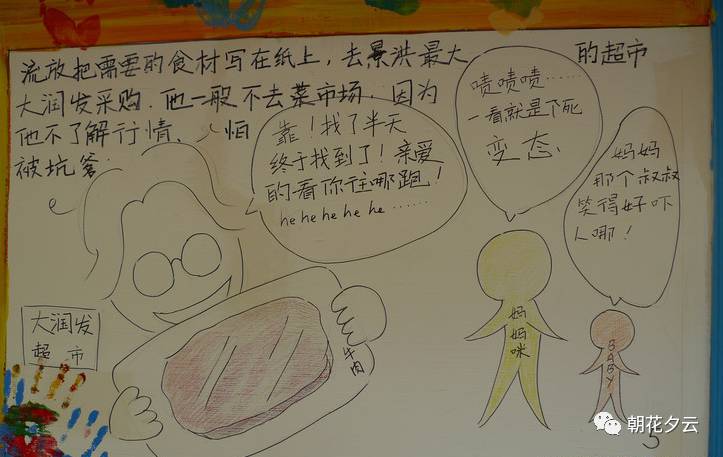 流放把需要的食材写在纸上，去景洪最大 的超市
大润发采购．他一般不去菜市场．因为
他不了解行情、怕
被坑爹．
靠！找了半天
终于找到了！亲爱
的看你往哪跑！
he he he he he……
啧啧啧……
一看就是个死
变态．
妈妈
那个叔叔
笑得好吓
人哪！
大润发
超市
牛肉
妈妈咪
BABY
朝花夕云
5